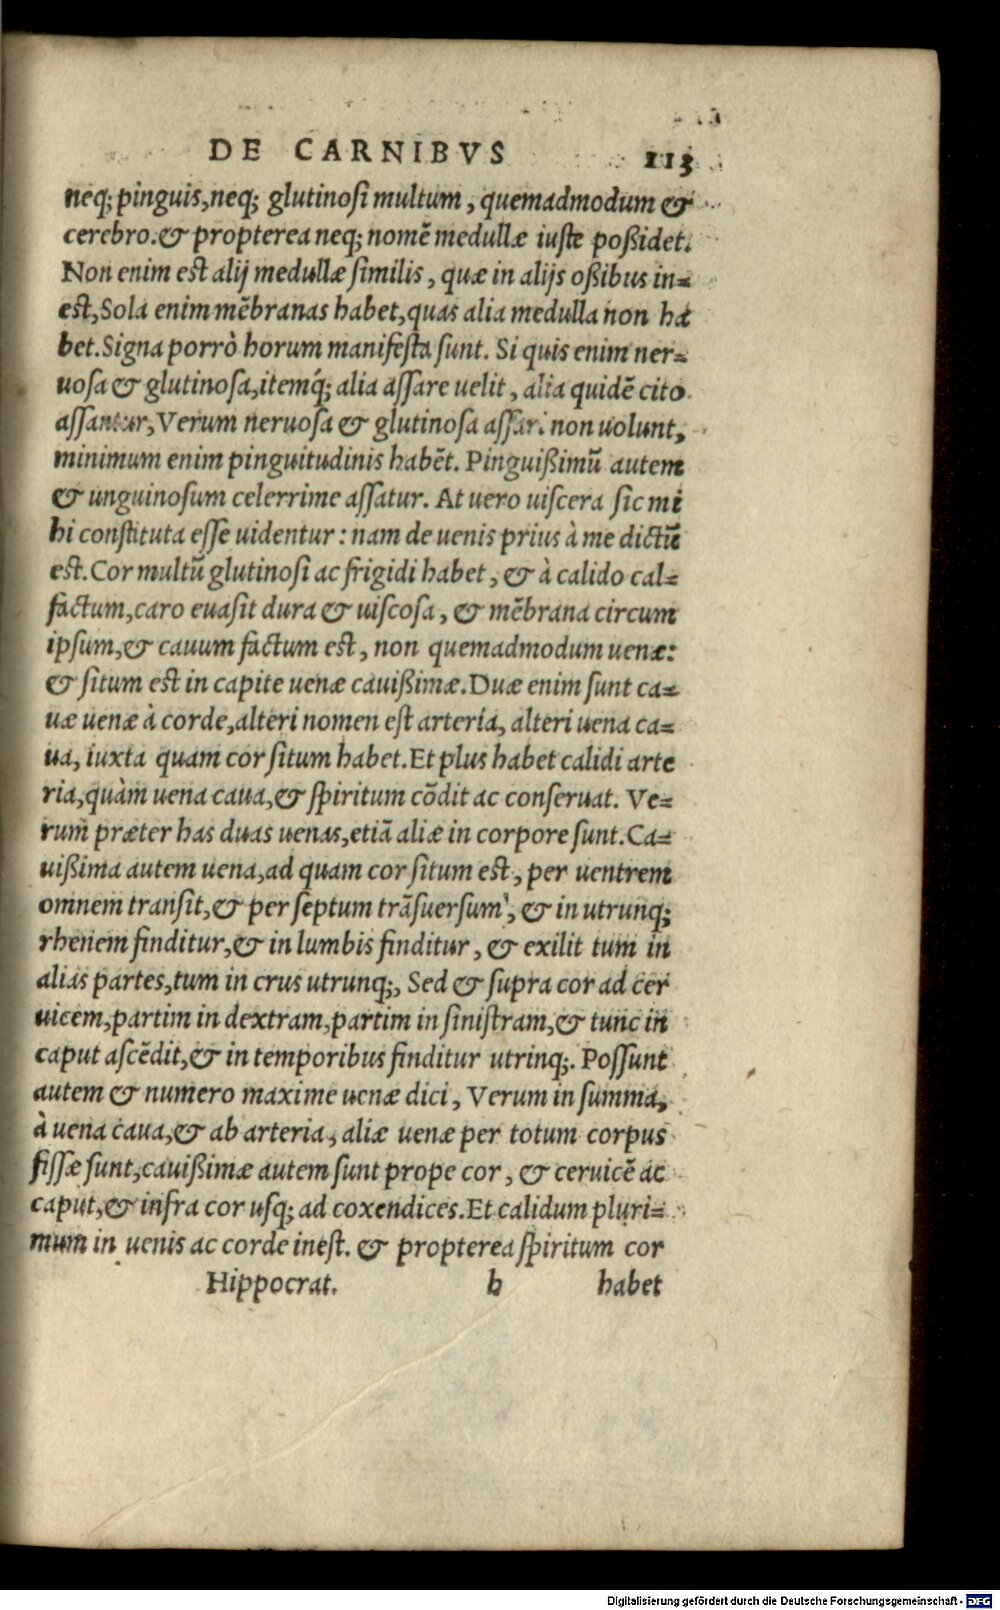 DE CARNIBVS 113
neq; pinguis, neq; glutinosi multum, quemadmodum &
cerebro. & propterea neq; nomē medullæ iuste poßidet.
Non enim est alij medullæ similis, quæ in alijs oßibus in=
est, Sola enim mēbranas habet, quas alia medulla non ha
bet. Signa porrò horum manifesta sunt. Si quis enim ner=
uosa & glutinosa, itemq́; alia assare uelit, alia quidē cito
assantur, Verum neruosa & glutinosa assari non uolunt,
minimum enim pinguitudinis habēt. Pinguißimū autem
& unguinosum celerrime assatur. At uero uiscera sic mi
hi constituta esse uidentur: nam de uenis prius à me dictū
est. Cor multū glutinosi ac frigidi habet, & à calido cal=
factum, caro euasit dura & uiscosa, & mēbrana circum
ipsum, & cauum factum est, non quemadmodum uenæ:
& situm est in capite uenæ cauißimæ. Duæ enim sunt ca=
uæ uenæ à corde, alteri nomen est arteria, alteri uena ca=
ua, iuxta quam cor situm habet. Et plus habet calidi arte
ria, quàm uena caua, & spiritum cōdit ac conseruat. Ve=
rum præter has duas uenas, etiā aliæ in corpore sunt. Ca=
uißima autem uena, ad quam cor situm est, per uentrem
omnem transit, & per septum trāsuersum, & in utrunq;
rhenem finditur, & in lumbis finditur, & exilit tum in
alias partes, tum in crus utrunq;, Sed & supra cor ad cer
uicem, partim in dextram, partim in sinistram, & tunc in
caput ascēdit, & in temporibus finditur utrinq;. Possunt
autem & numero maxime uenæ dici, Verum in summa,
à uena caua, & ab arteria, aliæ uenæ per totum corpus
fissæ sunt, cauißimæ autem sunt prope cor, & ceruicē ac
caput, & infra cor usq; ad coxendices. Et calidum pluri=
mum in uenis ac corde inest. & propterea spiritum cor
Hippocrat. h habet
Digitalisierung gefördert durch die Deutsche Forschungsgemeinschaft - DFG